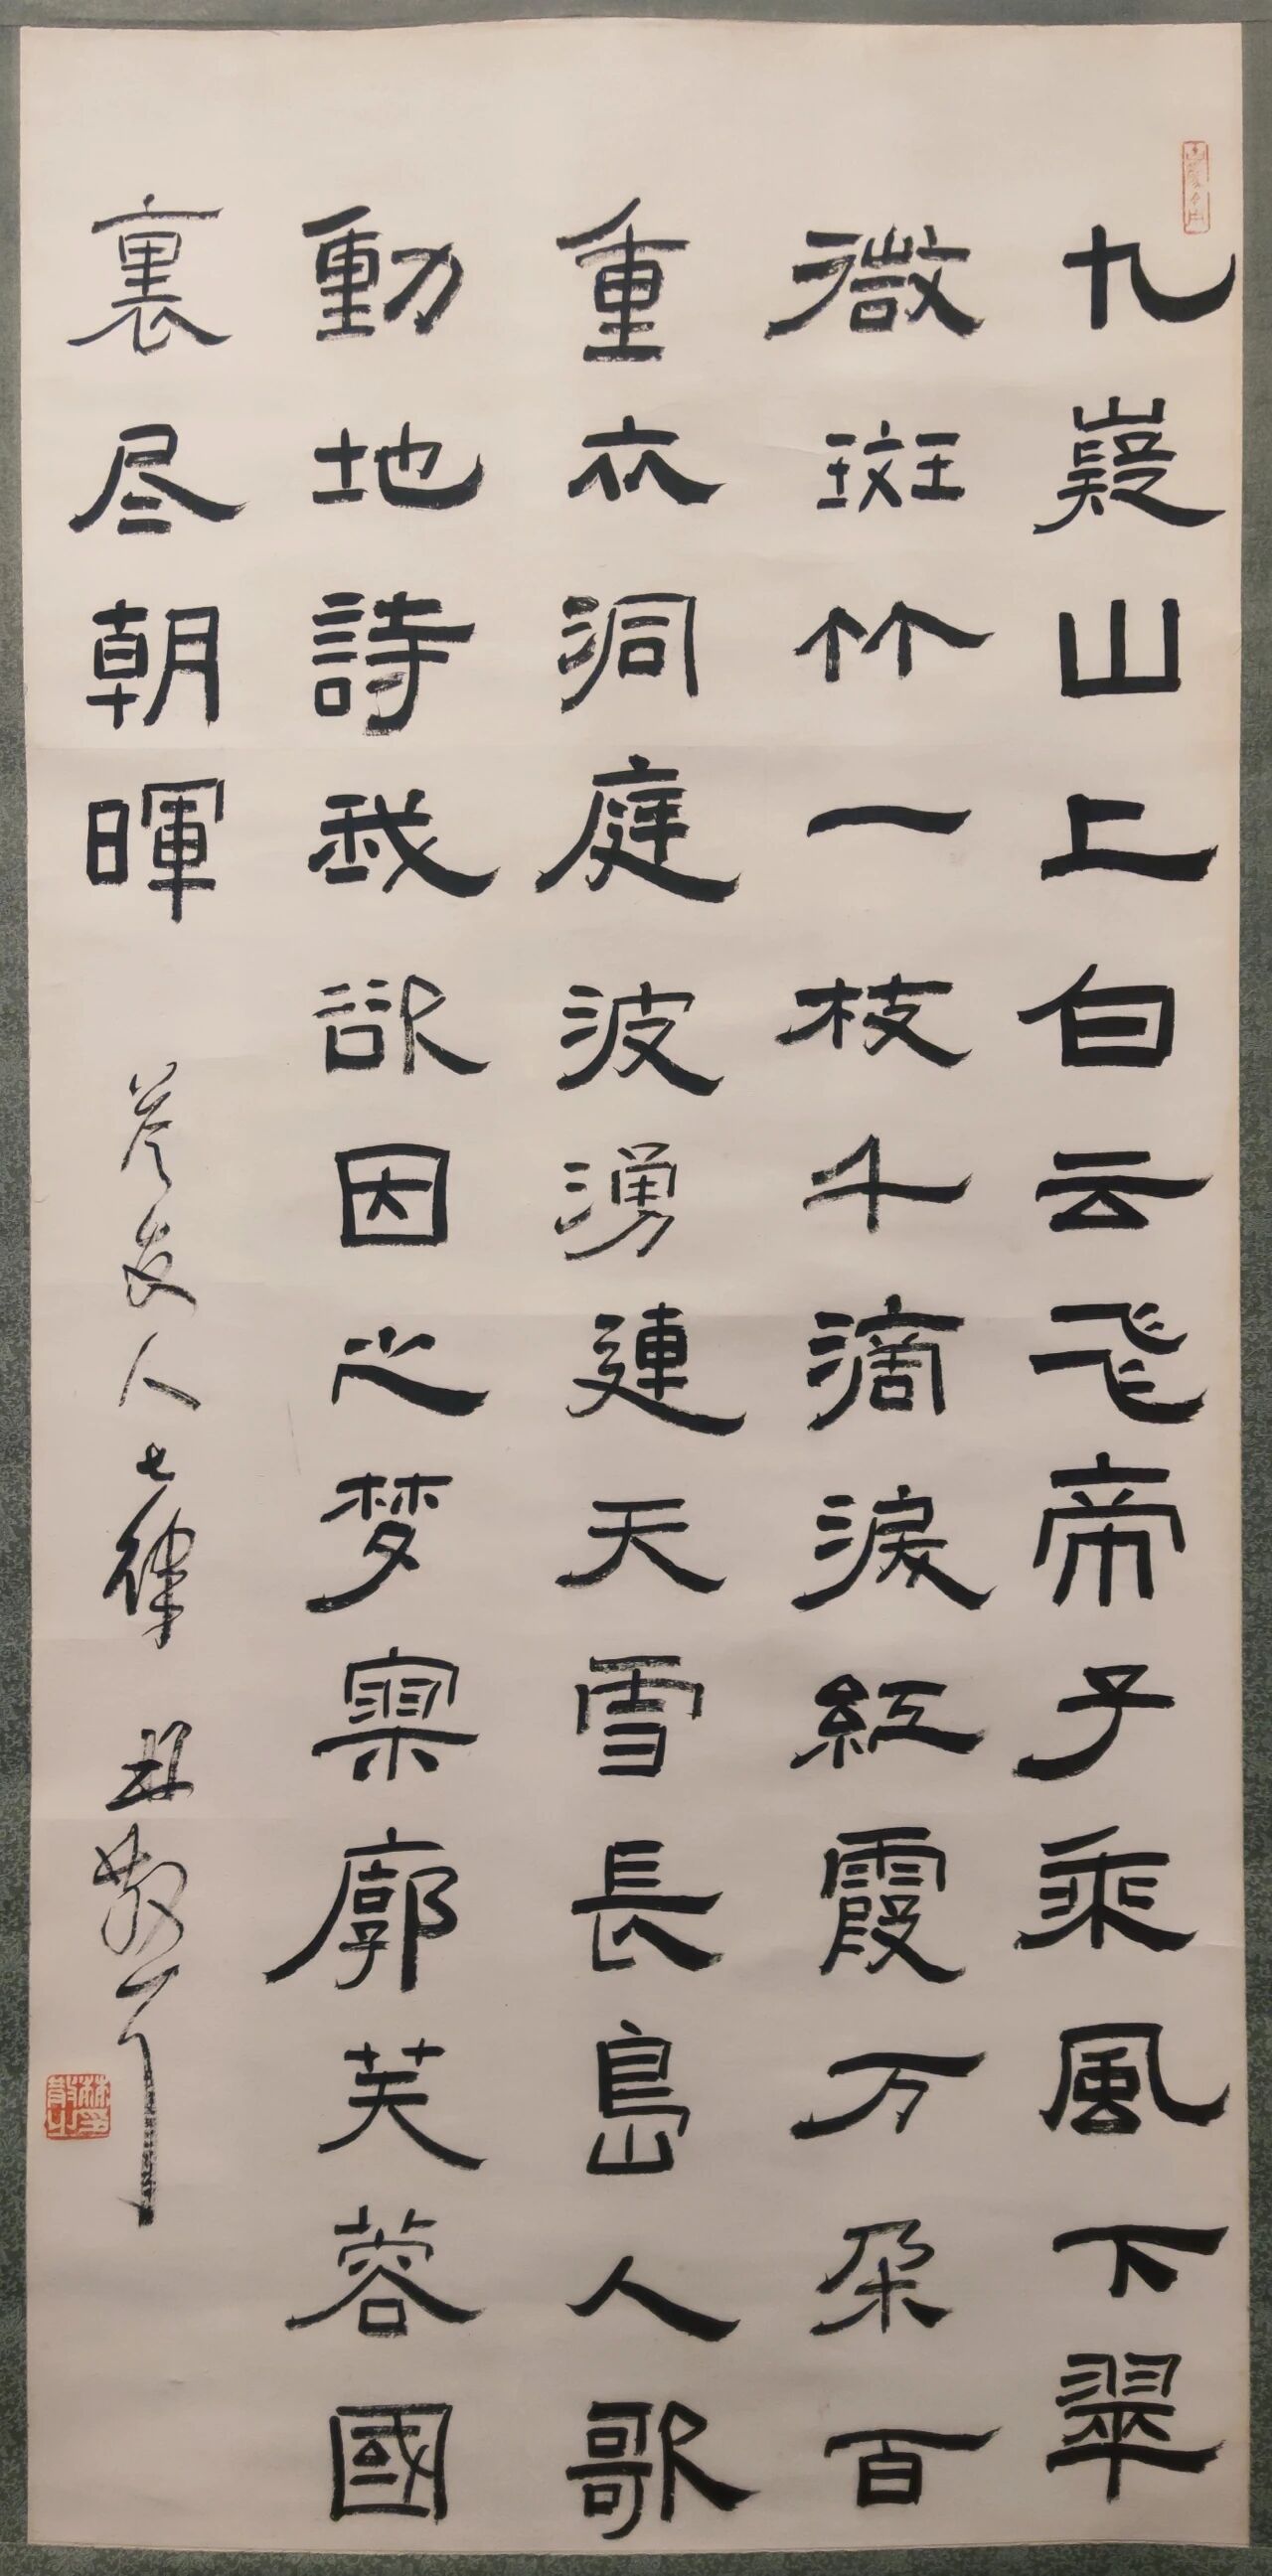 九嶷山上白云飞帝子乘風下翠
微斑竹一枝千滴淚紅霞万朵百
重衣洞庭波湧連天雪長島人歌
動地詩我欲因之梦寥廓芙蓉國
裏尽朝暉
答友人七律 林散耳
林散之